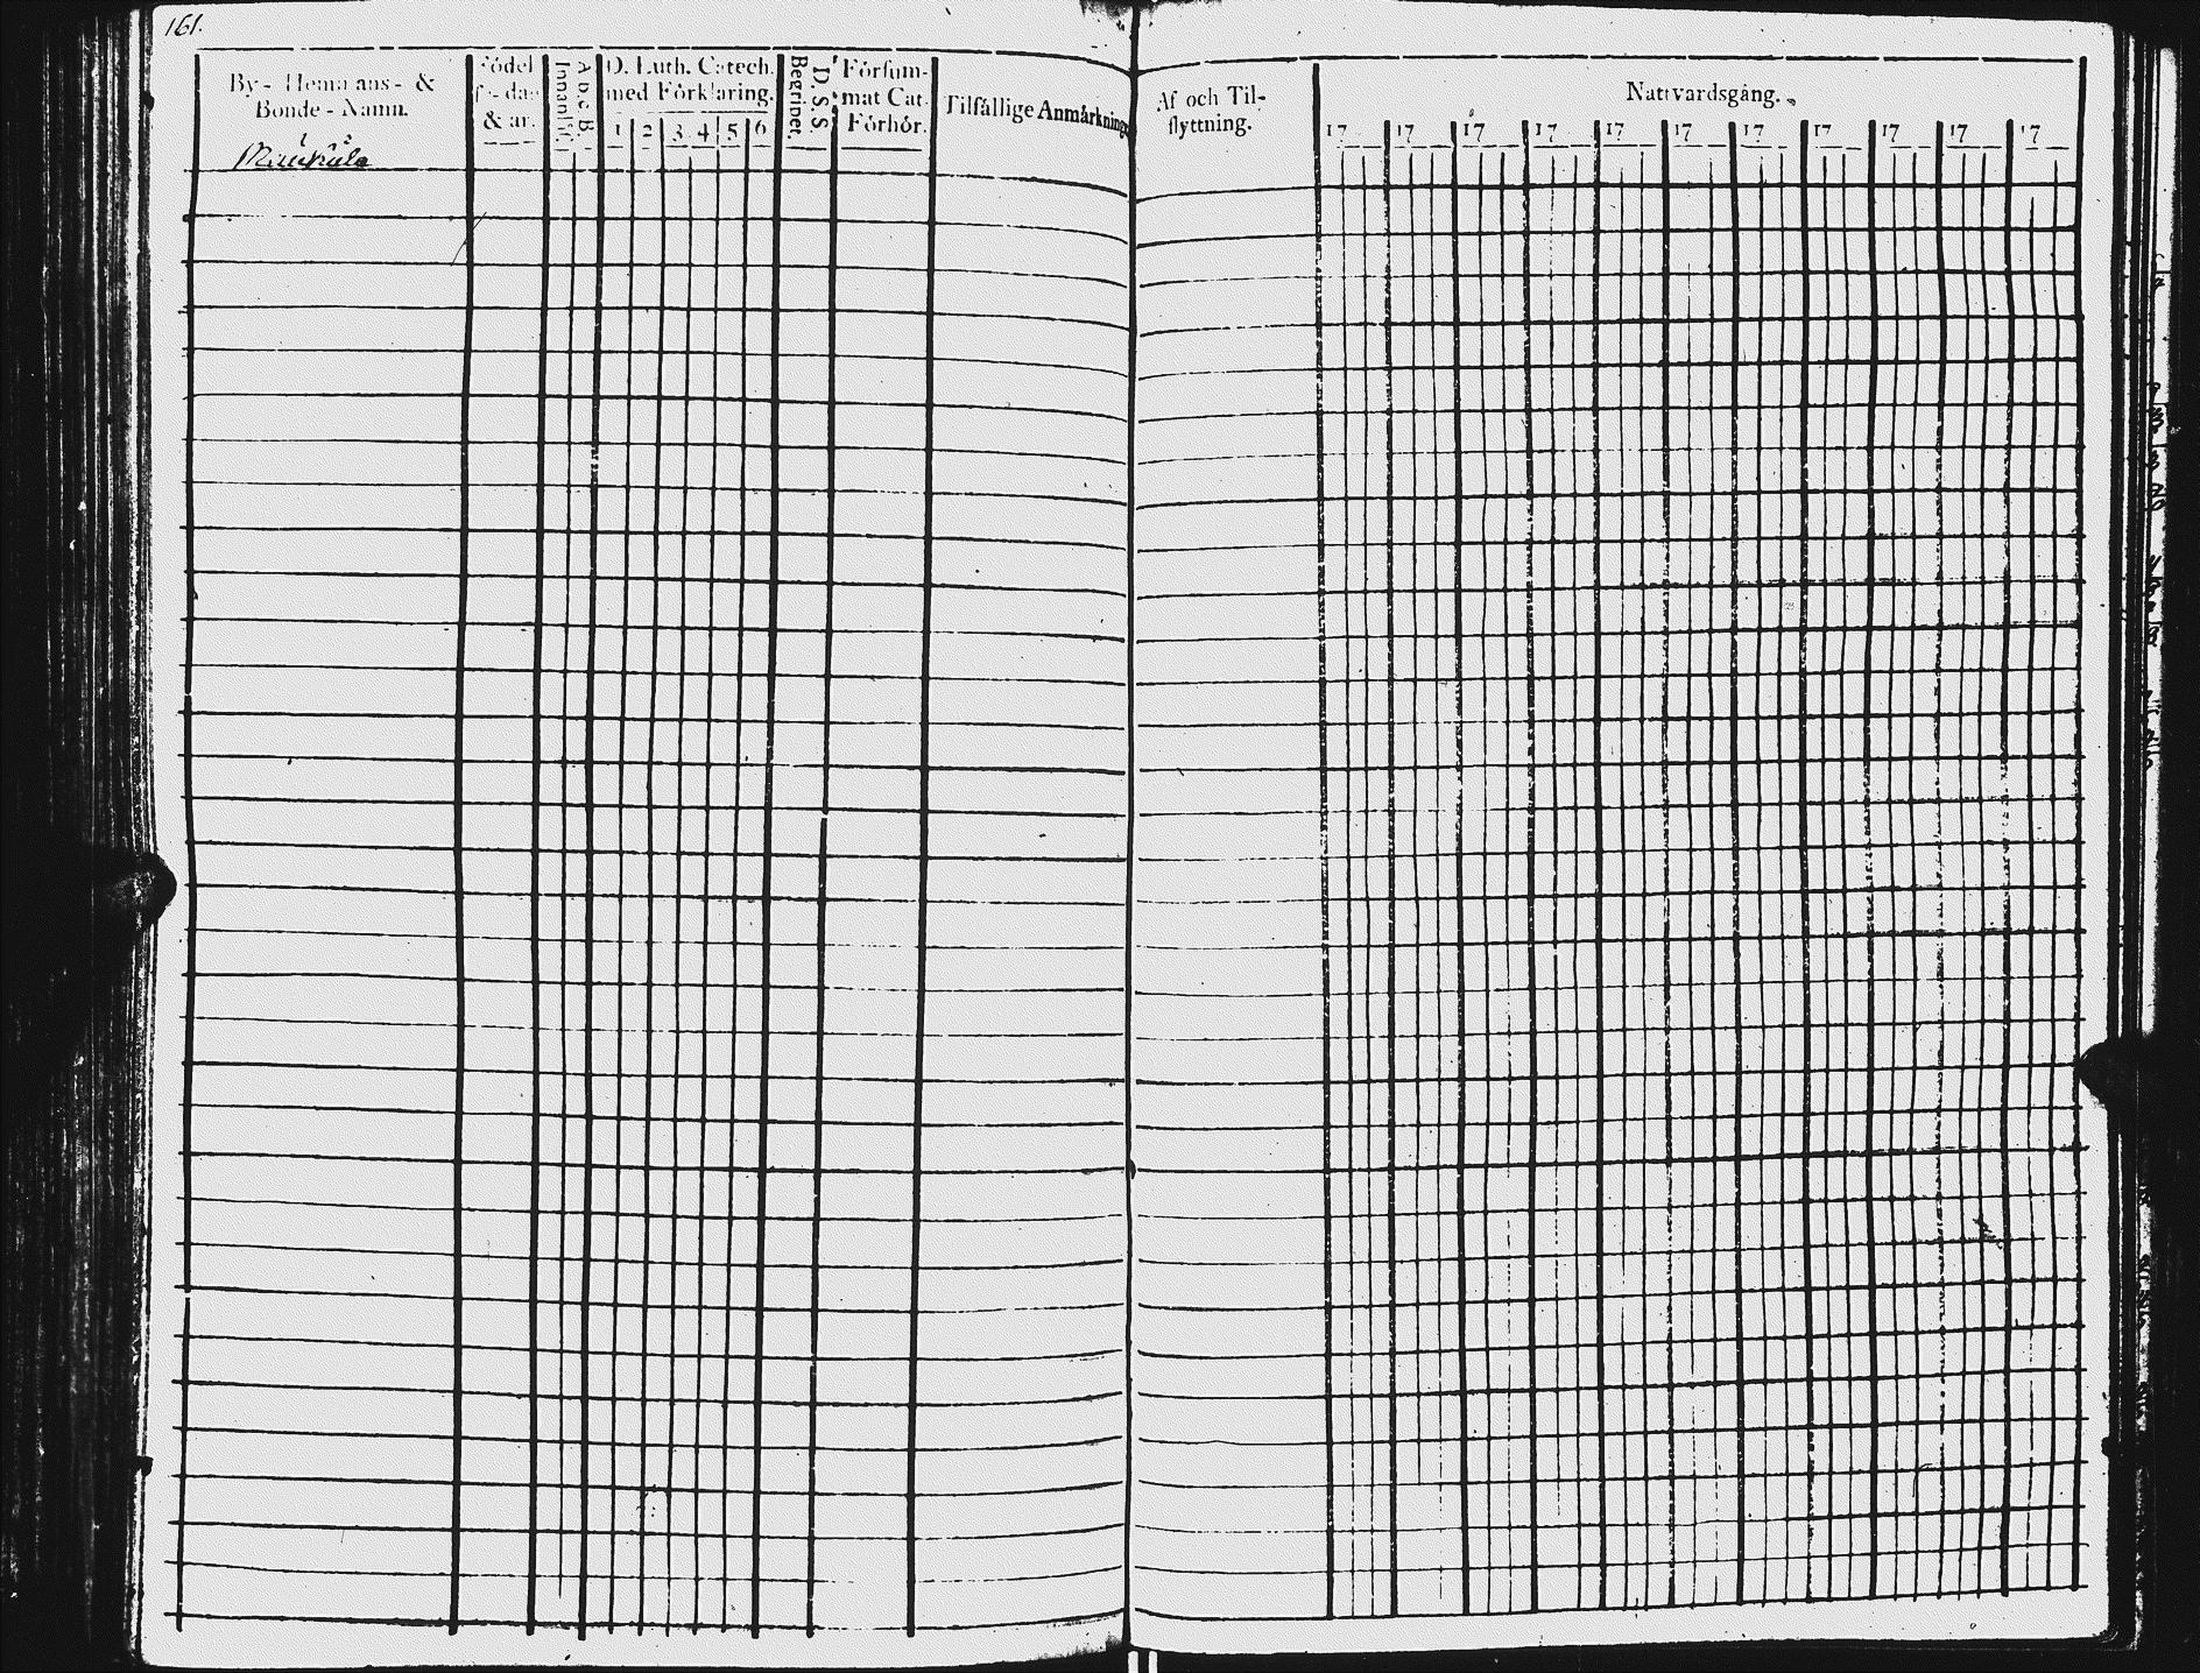 161.
By - Hemmans - &
Bonde - Namn.
Födel
se - dag
& år.
Innanläs.
A. b. c. B.
D. Luth. Catech.
med Förklaring.
1 2 3 4 5 6
Begripet.
D. S. S.
Försum-
mat Cat.
Förhör.
Tilfällige Anmärkning
Af och Til-
flyttning.
Nattvardsgång.
17 17 17 17 17 17 17 17 17 17 17